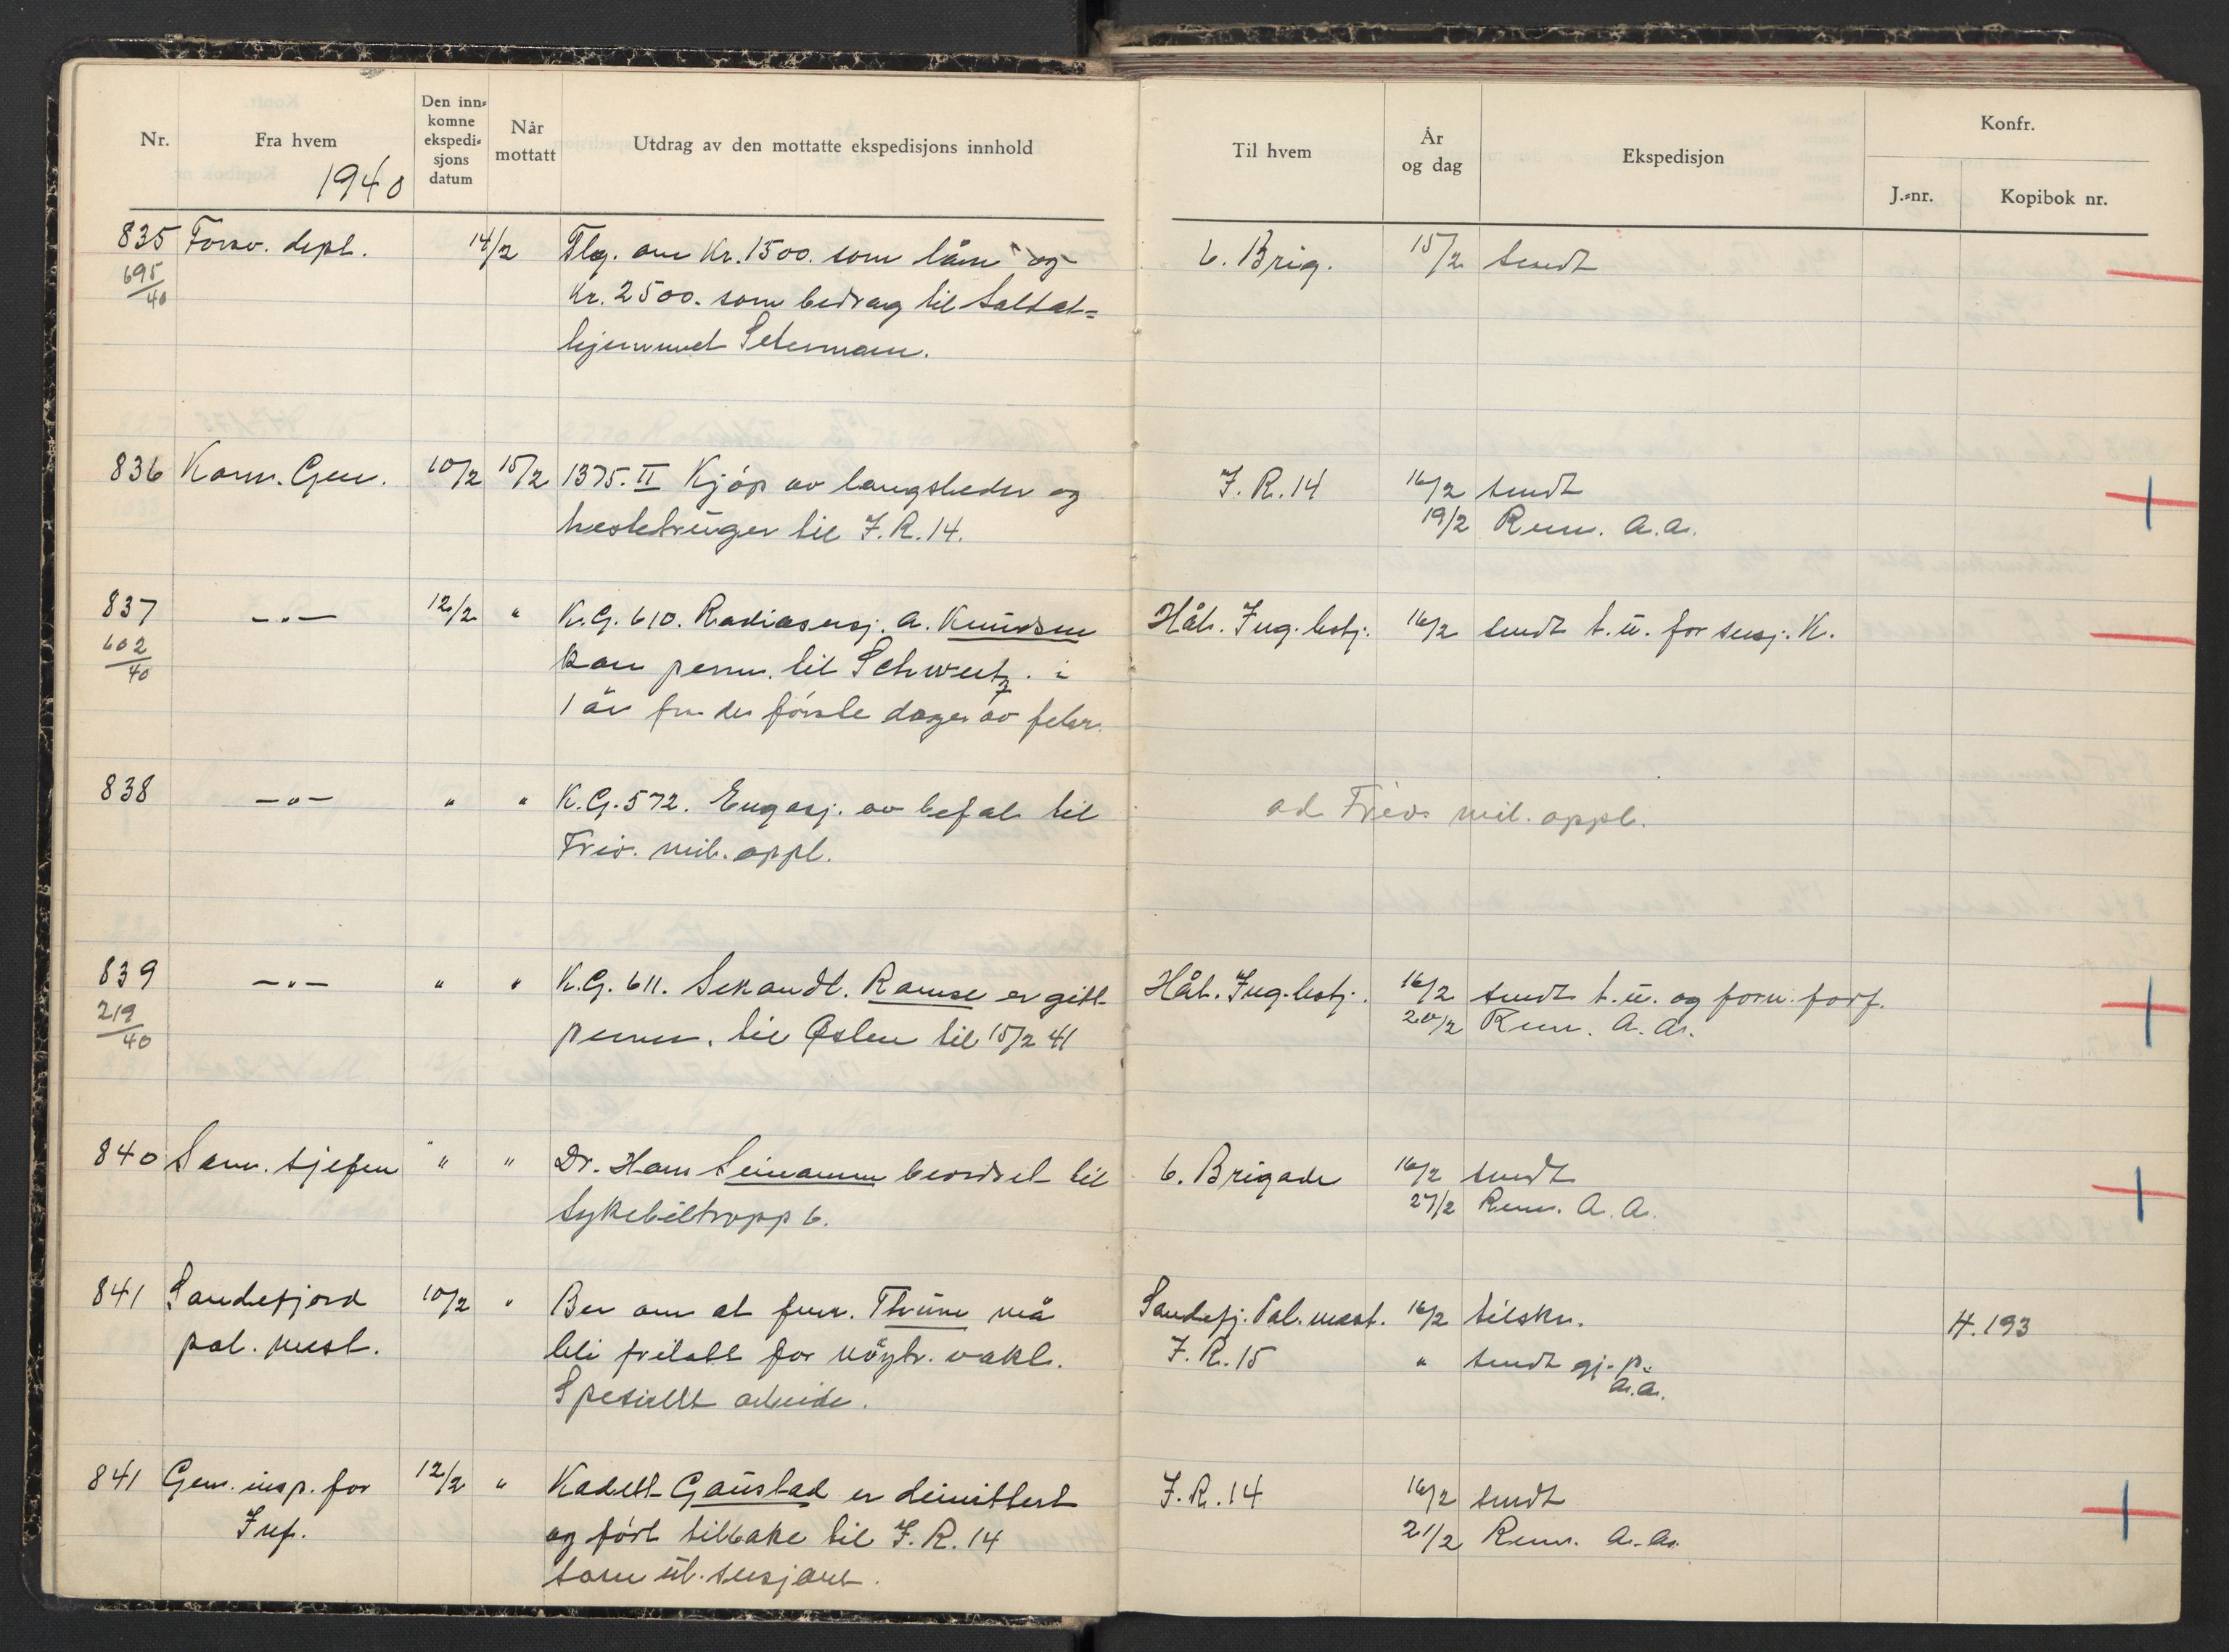 Nr.
Fra hvem
1940
Den inn=
komne
ekspedi=
sjons
datum
Når
mottatt
Utdrag av den mottatte ekspedisjons innhold
Til hvem
År
og dag
Ekspedisjon
Konfr.
J.=nr.
Kopibok nr.
835 Forsv. dept. 14/2 Tlg. om Kr. 1500. som lån og 6. Brig. 15/2 sendt
695/40 Kr. 2500. som bidrag til Soldat=
hjemmet Setermoen.
836 Komm. Gen. 10/2 15/2 1375. II Kjøp av langsleder og J.R. 14 16/2 sendt
hestetruger til J.R. 14. 19/2 Rem. a.a.
837 —"— 12/2 " K.G. 610. Radiosersj. A. Knudsen Hål. Jng. bstj. 16/2 sendt t.u. for sersj. K.
602/40 kan perm. til Schweitz. i
1 år fra de første dager av febr.
838 —"— " " K.G. 572. Engasj. av befal til ad Friv. mil. oppl.
Friv. mil. oppl.
839 —"— " " K.G. 611. Sekondl. Ramse er gitt Hål. Jng. bstj. 16/2 sendt t.u. og forn. forf.
219/40 perm. til Østen til 15/2 41 20/2 Rem. a.a.
840 San. sjefen " " Dr. Hans Seinanm beordret til 6. Brigade 16/2 sendt
Sykebiltropp 6. 27/2 Rem. A.A.
841 Sandefjord 10/2 " Ber om at fenr. Thrune må Sandefj. Pol. mest. 16/2 tilskr. H. 193
pol. mest. bli fritatt for nøytr. vakt. J.R. 15 " sendt gj. p.
Spesiellt arbeide. a.a.
841 Gen. insp. for 12/2 " Kadett Gaustad er dimittert J.R. 14 16/2 sendt
Inf. og ført tilbake til J.R. 14 21/2 Rem. a.a.
som ut. sersjant.